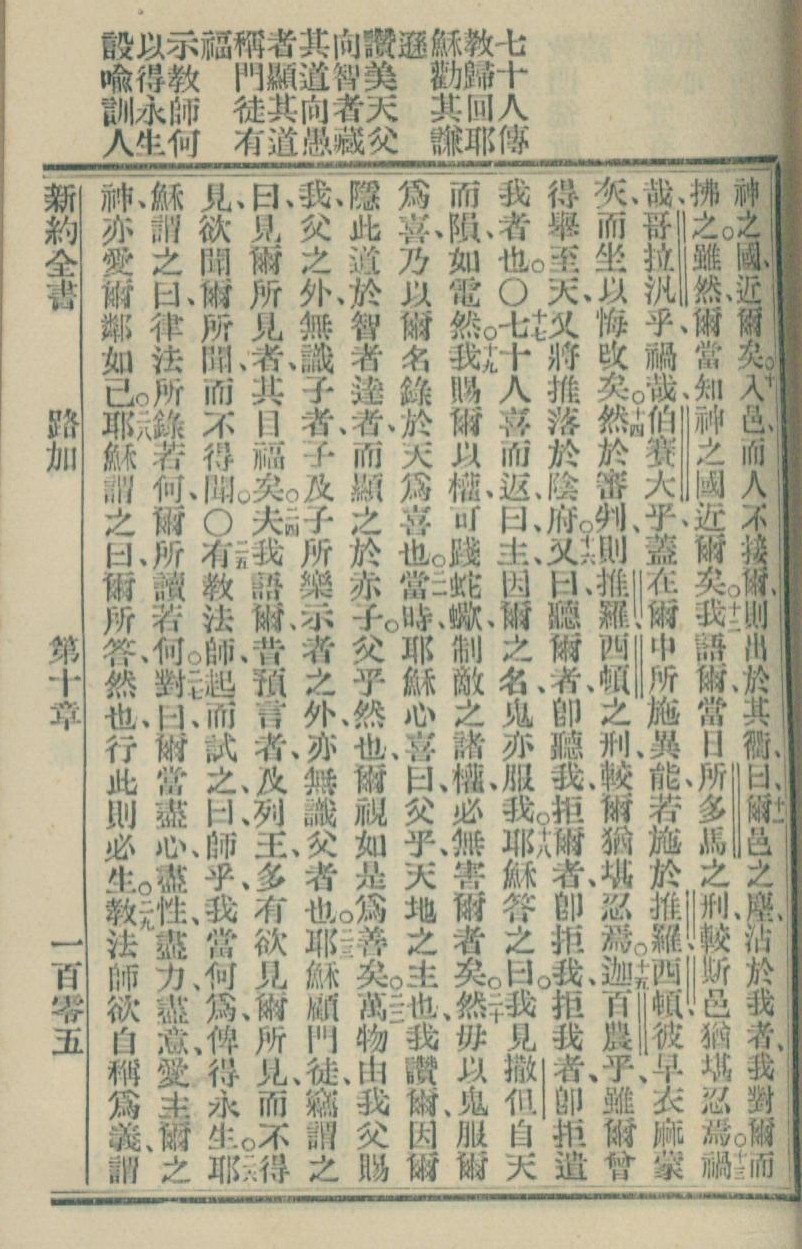 七十人傳
教歸回耶
穌勸其謙
遜
讚美天父
向智者藏
其道向愚
者顯其道
稱門徒有
福
示教師何
以得永生
設喩訓人
神之國、近爾矣。十入邑、而人不接爾、則出於其衢、曰、十一爾邑之塵、沾於我者、我對爾而
拂之。雖然、爾當知神之國近爾矣。十二我語爾、當日所多馬之刑、較斯邑猶堪忍焉。十三禍
哉、哥拉汎乎、禍哉、伯賽大乎、蓋在爾中所施異能、若施於推羅西頓、彼早衣麻蒙
灰、而坐以悔改矣。十四然於審判、則推羅、西頓之刑、較爾猶堪忍焉。十五迦百農乎、雖爾曾
得舉至天、又將推落於陰府。十六又曰、聽爾者、卽聽我、拒爾者、卽拒我、拒我者、卽拒遣
我者也。〇十七七十人喜而返、曰、主、因爾之名、鬼亦服我。十八耶穌答之曰。我見撒但自天
而隕、如電然。十九我賜爾以權、可踐蛇蠍、制敵之諸權、必無害爾者矣。二十然毋以鬼服爾
爲喜、乃以爾名錄於天爲喜也。二一當時、耶穌心喜曰、父乎、天地之主也、我讚爾、因爾
隱此道於智者達者、而顯之於赤子。父乎、然也、爾視如是爲善矣。二二萬物由我父賜
我、父之外、無識子者、子及子所樂示者之外、亦無識父者也。二三耶穌顧門徒、竊謂之
曰、見爾所見者、其目福矣。二四夫我語爾、昔預言者、及列王、多有欲見爾所見、而不得
見、欲聞爾所聞、而不得聞。〇二五有教法師起而試之、曰、師乎、我當何爲、俾得永生。二六耶
穌謂之曰、律法所錄若何、爾所讀若何。二七對曰、爾當盡心、盡性、盡力、盡意、愛主爾之
神、亦愛爾鄰如己。二八耶穌謂之曰、爾所答、然也、行此則必生。二九教法師欲自稱爲義、謂
新約全書 路加 第十章 一百零五